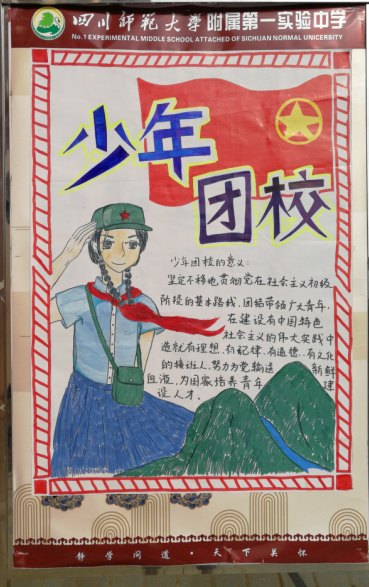 四川师范大学附属第一实验中学
No.1 EXPERIMENTAL MIDDLE SCHOOL ATTACHED OF SICHUAN NORMAL UNICERSITY
少年
团校
少年团校的意义:
坚定不移地贯彻党在社会主义初级
阶段的基本路线,团结带领广大青年,
在建设有中国特色
社会主义的伟大实践中
造就有理想、有纪律、有道德、有文化
的接班人,努力为党输送新鲜
血液,为国家培养青年建
设人才.
静学问道·天下关怀